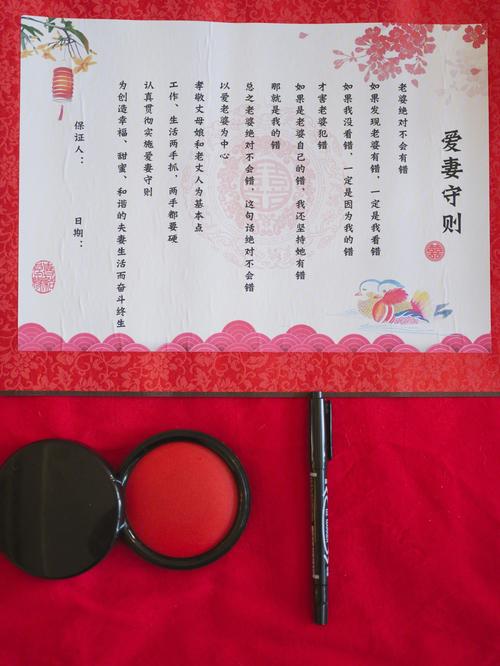 爱妻守则
老婆绝对不会有错
如果发现老婆有错，一定是我看错
如果我没看错，一定是因为我的错
才害老婆犯错
如果是老婆自己的错，我还坚持她有错
那就是我的错
总之老婆绝对不会错，这句话绝对不会错
以爱老婆为中心
孝敬丈母娘和老丈人为基本点
工作、生活两手抓，两手都要硬
认真贯彻实施爱妻守则
为创造幸福、甜蜜、和谐的夫妻生活而奋斗终生
保证人：
日期：